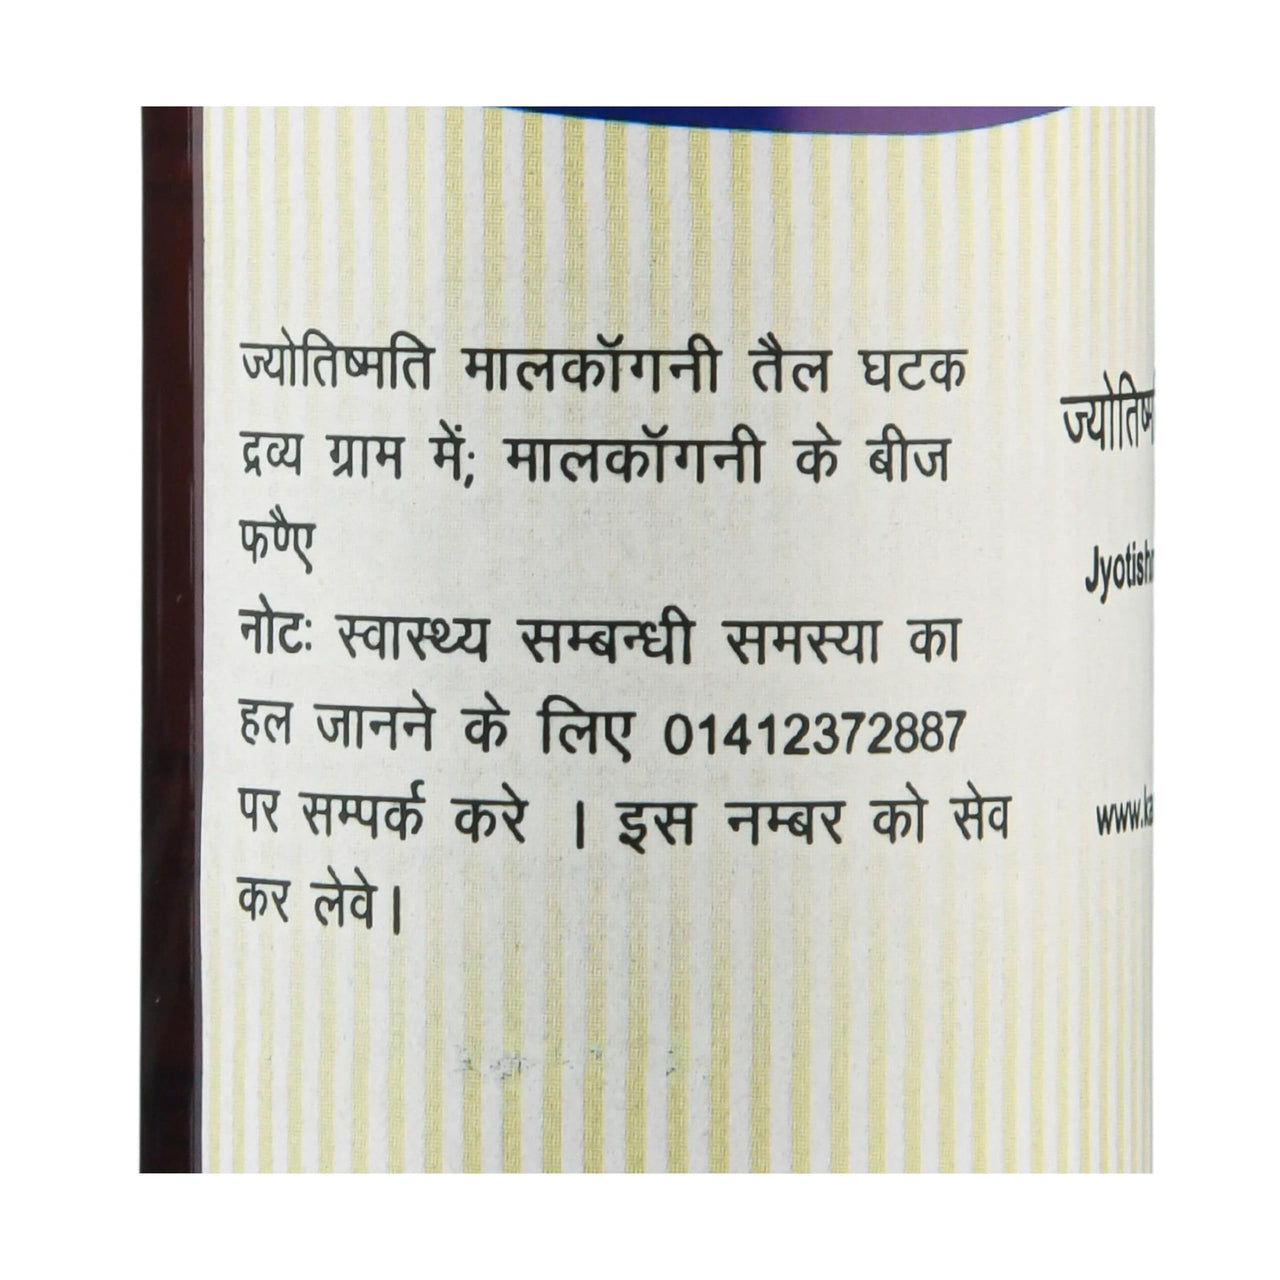 ज्योतिष्मति मालकॉगनी तैल घटक
द्रव्य ग्राम में; मालकॉगनी के बीज
फण्एै
नोटः स्वास्थ्य सम्बन्धी समस्या का
हल जानने के लिए 01412372887
पर सम्पर्क करे । इस नम्बर को सेव
कर लेवे।